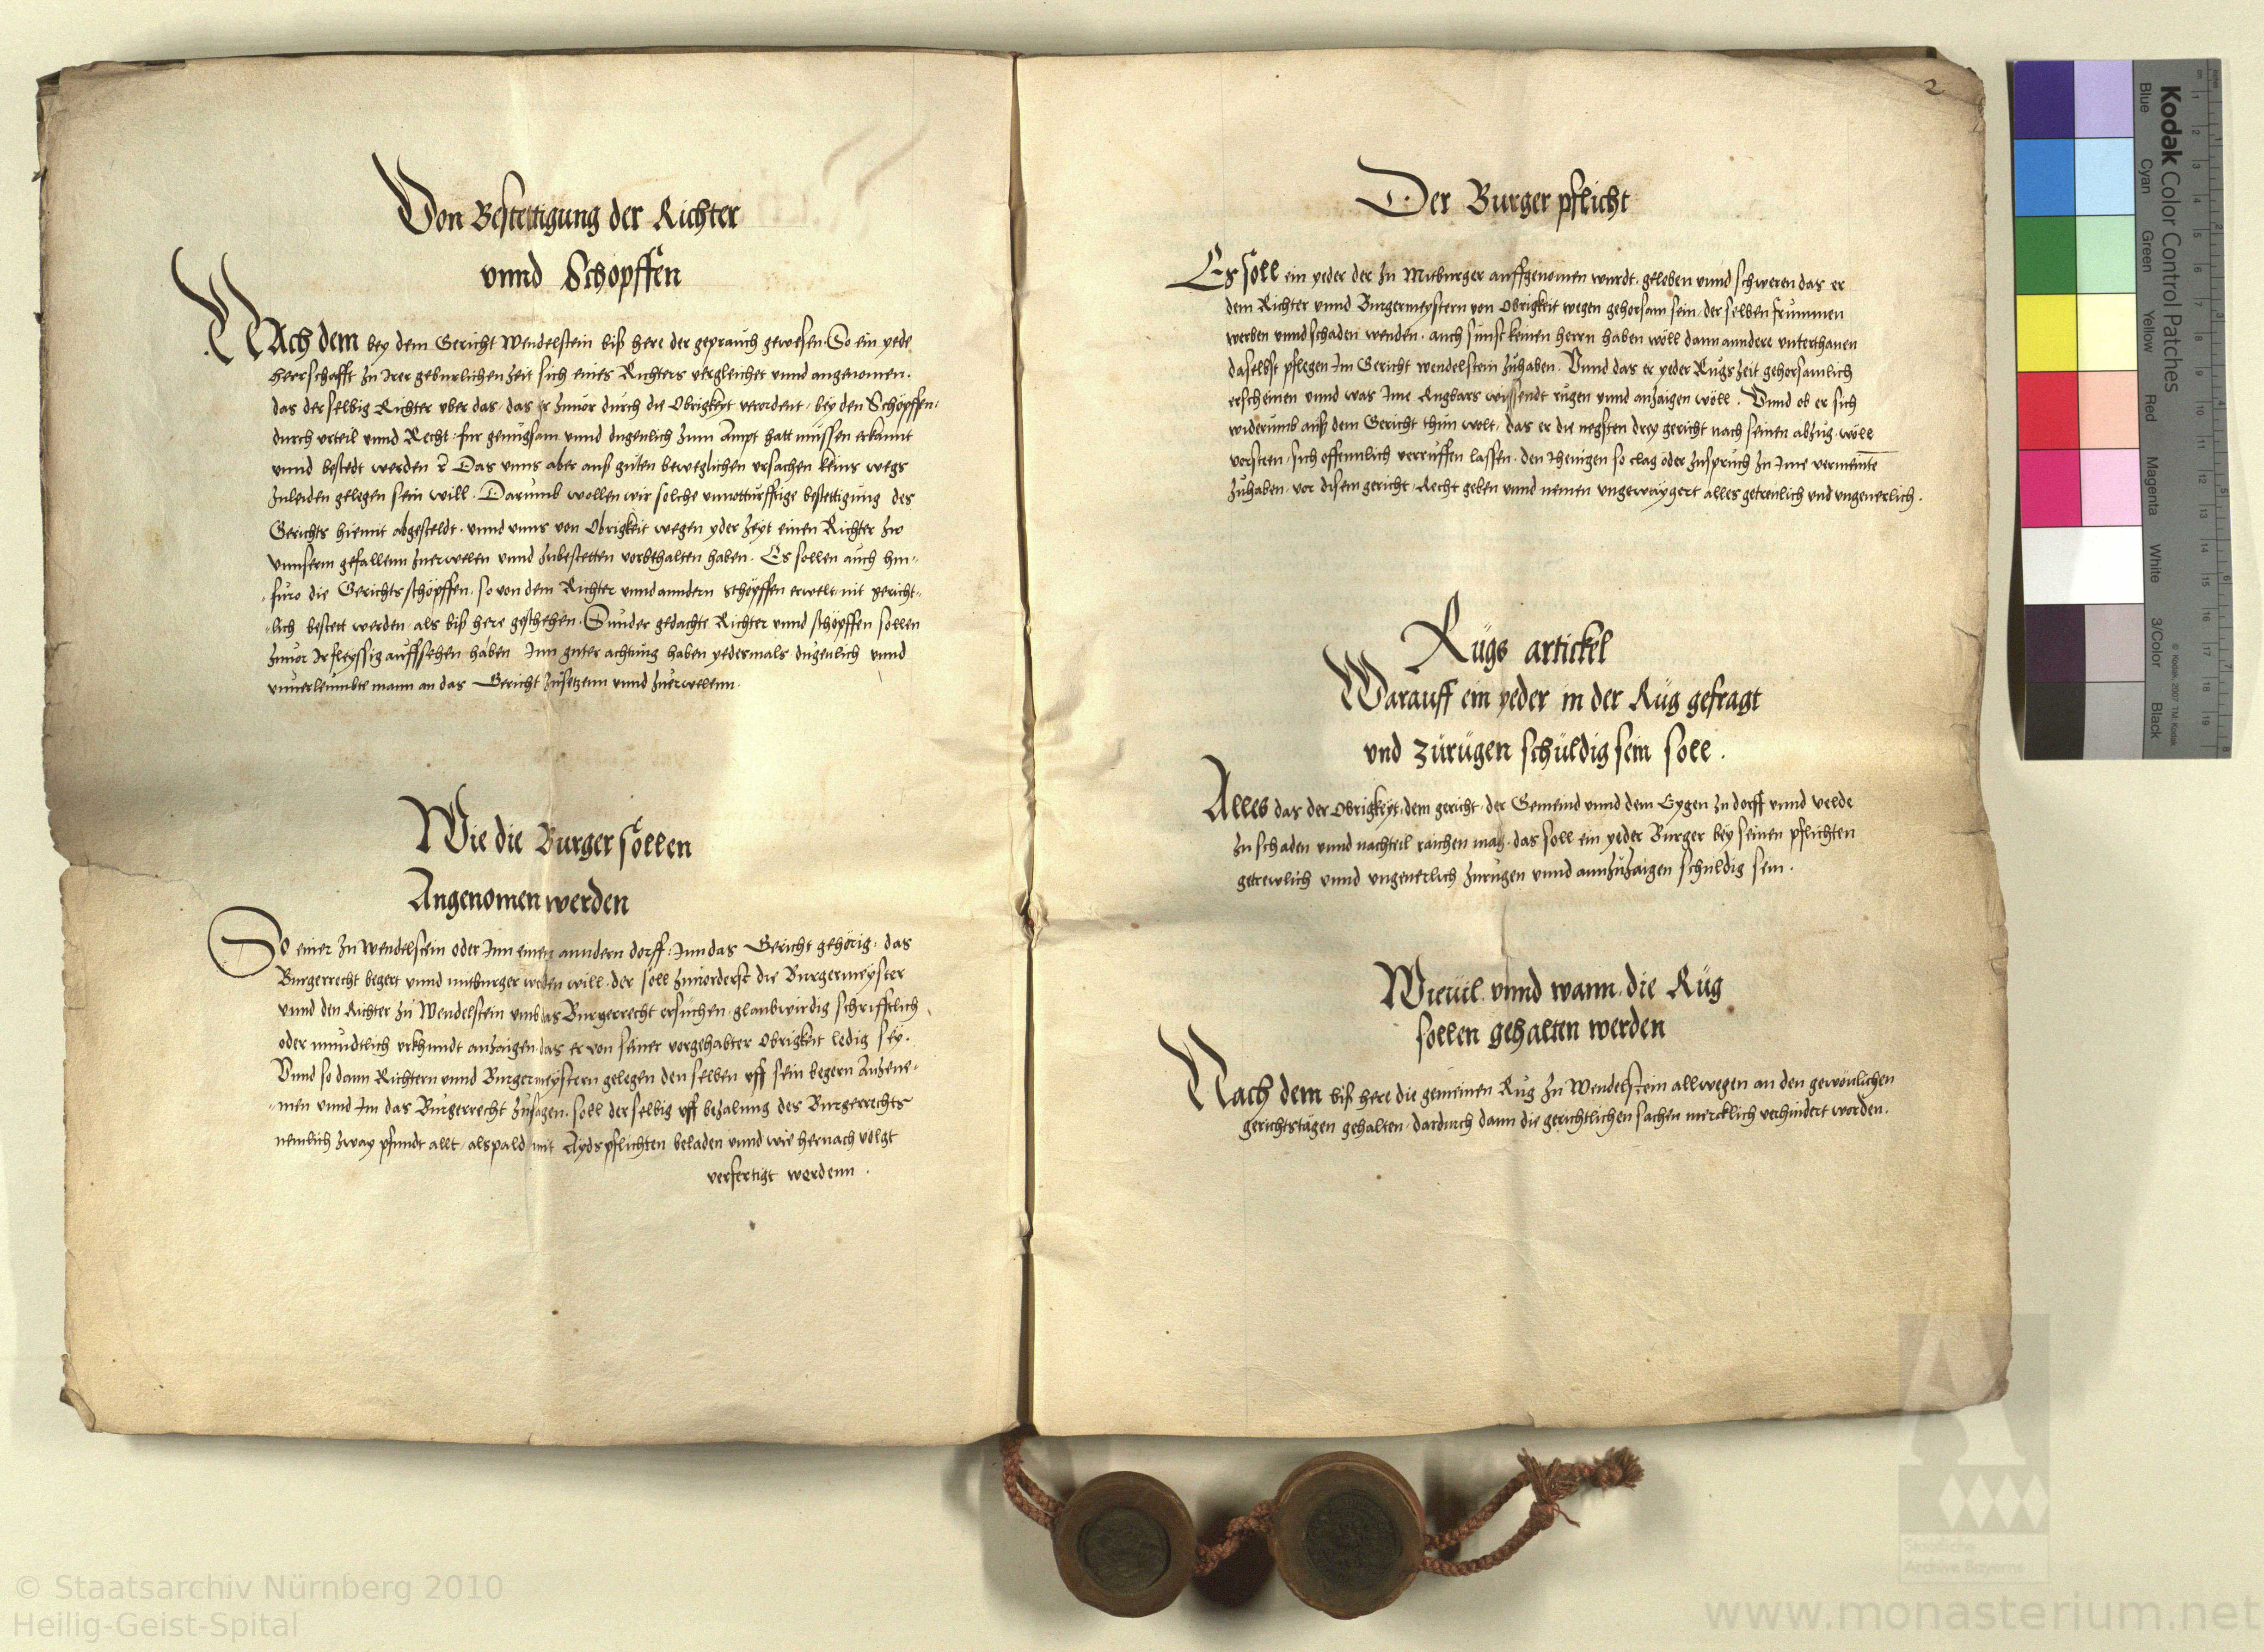 Von Bestettigung der Richter
vnnd Schöpffen
NAch dem bey dem Gericht Wendelstein biß here der geprauch gewesen. So ein yede
Heerschafft zu Irer geburlichen Zeit sich eines Richters vergleichet vnnd angenomen.
das derselbig Richter vber das, das er zuuor durch die Obrigkeyt verordent, bey den Schöpffen,
durch vrteil vnnd Recht, fur genugsam vnnd dugenlich zum Ampt hatt müssen erkannt
vnnd bestedt werden Das vnns aber auß guten beweglichen vrsachen keins wegs
zuleiden gelegen sein will. Darumb wollen wir solche vnnotturfftige bestettigung des
Gerichts hiemit abgesteldt, vnnd vnns von Obrigkeit wegen yder zeyt einen Richter zw
vnnserm gefallenn zuerwelen vnnd zubestetten vorbehalten haben. Es sollen auch hin-
furo die Gerichts schöpffen, so von dem Richter vnnd anndern Schöpffen erwelt, nit gericht-
lich bestett werden, als biß here geschehen. Sunder gedachte Richter vnnd schöpffen sollen
zuuor Ir fleyssig auffsehen haben Inn guter achtung haben yedesmals dugenlich vnnd
vnuerleumbte mann an das Gericht zusetzenn vnnd zuerwelenn.
Wie die Burger söllen
Angenomen werden
So einer zu Wendelstein oder Inn einen anndern dorff, Inn das Gericht gehörig, das
Burgerrecht begert vnnd mitburger werden will, der soll zuuorderst die Burgermeyster
vnnd den Richter zu Wendelstein vmb das Burgerrecht ersuchen, glaubwirdig schrifftlich
oder mundtlich vrkhundt anzaigen, das er von seiner vorgehabter Obrigkeit ledig sey.
Vnnd so dann Richtern vnnd Burgermeystern gelegen den selben vff sein begern Anzene-
men vnnd Im das Burgerrecht zusagen, soll derselbig vff bezalung des Burgerrechts
nemlich zway pfundt allt, alspald mit Aydspflichten beladen vnnd wie hernach volgt
verfertigt werdenn.
2
Der Burger pflicht
Es soll ein yeder der zu Mitburger auffgenomen wurdt, geloben vnnd schweren das er
dem Richter vnnd Burgermeystern von Obrigkeit wegen gehorsam sein, der selben frummen
werben vnnd schaden wenden, auch sunst keinen herrn haben wöll dann anndere vnterthanen
daselbst pflegen Im Gericht Wendelstein zuhaben. Vnnd das er yeder Rugs Zeit gehorsamlich
erscheinen vnnd was Ime Rugbars wissendt rugen vnnd anzaigen wöll. Vnnd ob er sich
widerumb auß dem Gericht thun wolt, das er die negsten drey gericht nach seinen abzug wöll
vorsteen, sich offennlich verruffen lassen, den Ihenigen so clag oder zuspruch zu Ime vermeinte
zuhaben, vor disem gericht, Recht geben vnnd nemen vngewaygert alles getreulich vnd vngeuerlich.
Rügs artickel
Warauff ein yeder in der Rüg gefragt
vnd zürügen schüldig sein soll.
Alles das der Obrigkeyt, dem gericht, der Gemeind vnnd dem Eygen zu dorff vnnd velde
zu schaden vnnd nachteil raichen mag, das soll ein yeder Burger bey seinen pflichten
getrewlich vnnd vngeuerlich zurugen vnnd annzuzaigen schuldig sein.
Wieuil vnnd wann die Rüg
sollen gehalten werden
Nach dem biß here die gemeinen Rug zu Wendelstein allwegen an den gewönlichen
gerichtstagen gehalten, dardurch dann die gerichtlichen sachen mercklich verhindert worden.
Kodak Color Control Patches
Blue Cyan Green Yellow Red Magenta White 3/Color Black
© Kodak, 2007 TM: Kodak
© Staatsarchiv Nürnberg 2010
Heilig-Geist-Spital
Staatliche
Archive Bayerns
www.monasterium.net